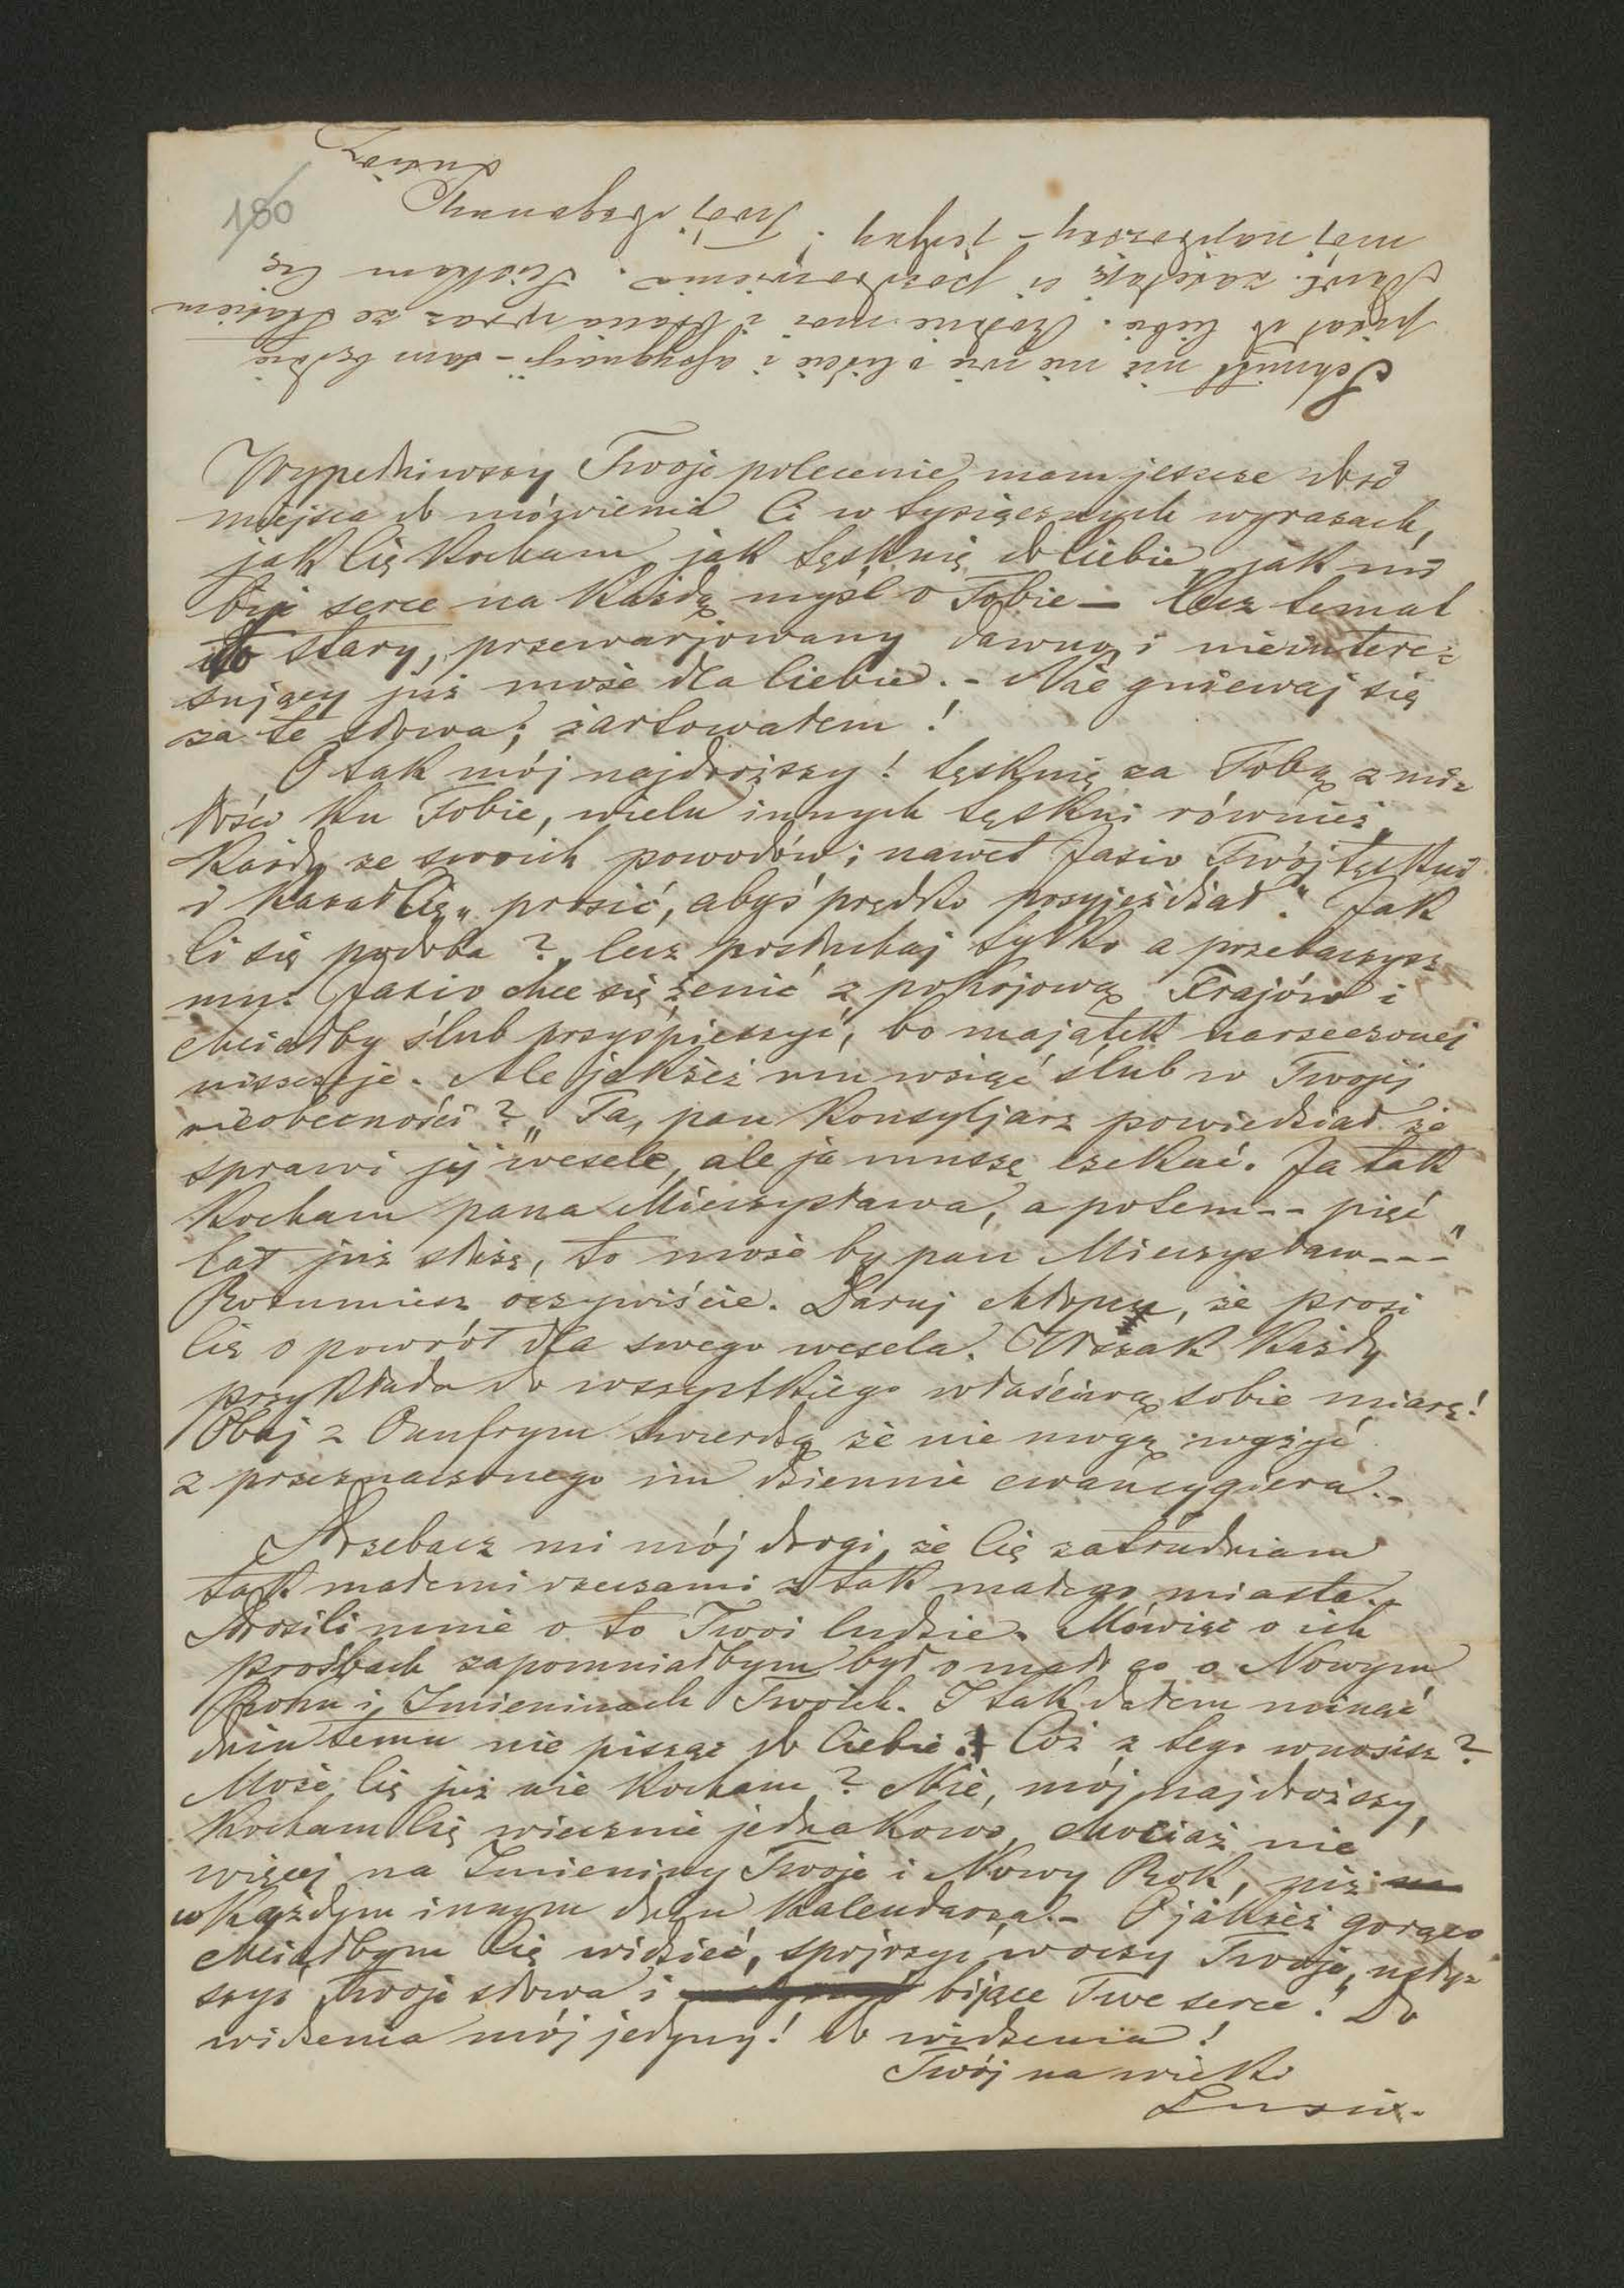 180
Schmitt nic nie wie o liście i asygnacji – sam będzie
pisał do Ciebie. Rodzice moi i bracia wraz ze Stasiem
zasyłają ci pozdrowienia. Ściskam Cię
mój najdroższy – jedyny! Twój kochany
Lusio
Wypełniwszy Twoje polecenie mam jeszcze dość
miejsca do mówienia Ci w tysiącznych wyrazach,
jak Cię kocham, jak tęsknię do Ciebie, jak mi
bije serce na każdą myśl o Tobie – lecz temat
to stary, przewarjowany dawno i nieintere=
sujący już może dla Ciebie. – Nie gniewaj się
za te słowa; żartowałem!
O tak mój najdroższy! tęsknię za Tobą z mi=
łości ku Tobie, wielu innych tęskni również,
każdy ze swoich powodów; nawet Jasio Twój tęskni
i kazał Cię „prosić, abyś prędko przyjeżdżał." Jak
Ci się podoba? lecz posłuchaj tylko a przebaczysz
mu: Jasio chce się żenić z pokojową Frajów i
chciałby ślub przyśpieszyć, bo majątek narzeczonej
niszczeje. Ale jakżeż mu wziąć ślub w Twojej
nieobecności? „Ta, pan Konsyljarz powiedział że
sprawi jej wesele, ale ja muszę czekać. Ja tak
kocham pana Mieczysława, a potem -- pięć
lat już służę, to może by pan Mieczysław ---"
Rozumiesz oczywiście. Daruj chłopcu, że prosi
Cię o powrót dla swego wesela. Wszak każdy
przykłada do wszystkiego właściwą sobie miarę!
Obaj z Onufrym twierdzą że nie mogą wyżyć
z przeznaczonego im dziennie cwancygiera. –
Przebacz mi mój drogi, że Cię zatrudniam
tak małemi rzeczami z tak małego miasta. –
Prosili mnie o to Twoi ludzie. Mówiąc o ich
prośbach zapomniałbym był o mało co o Nowym
Roku i Imieninach Twoich. I tak dałem minąć
dniu temu nie pisząc do Ciebie! Cóż z tego wnosisz?
Może Cię już nie kocham? Nie, mój najdroższy,
kocham Cię wiecznie jednakowo, chociaż nie
więcej na Imieniny Twoje i Nowy Rok, niż
w każdym innym dniu kalendarza. – O jakżeż gorąco
chciałbym Cię widzieć, spojrzyć w oczy Twoje, usły=
szyć Twoje słowa i bijące Twe serce! Do
widzenia mój jedyny! do widzenia!
Twój na wieki
Lusio.